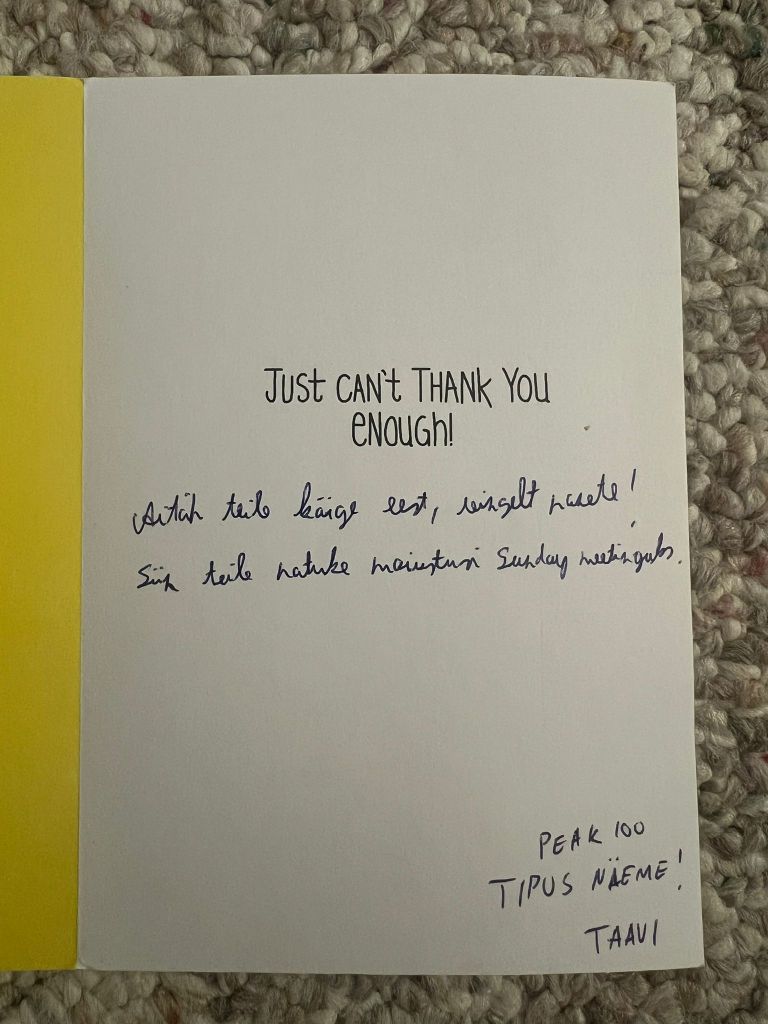 JUST CAN'T THANK YOU
ENOUGH!
Aitäh teile kõige eest, !
Siin teile natuke maiustusi Sunday meetinguks.
PEAK 100
TIPUS NÄEME!
TAAVI